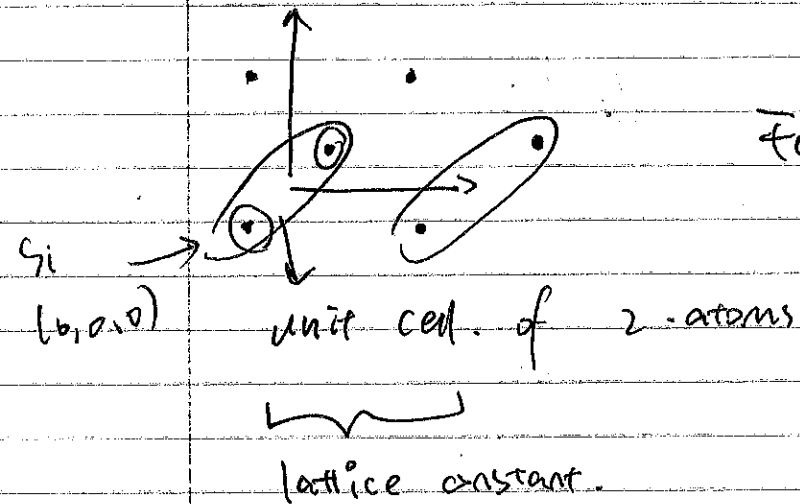 Si
(0,0,0)
unit cell. of 2. atoms
lattice constant.